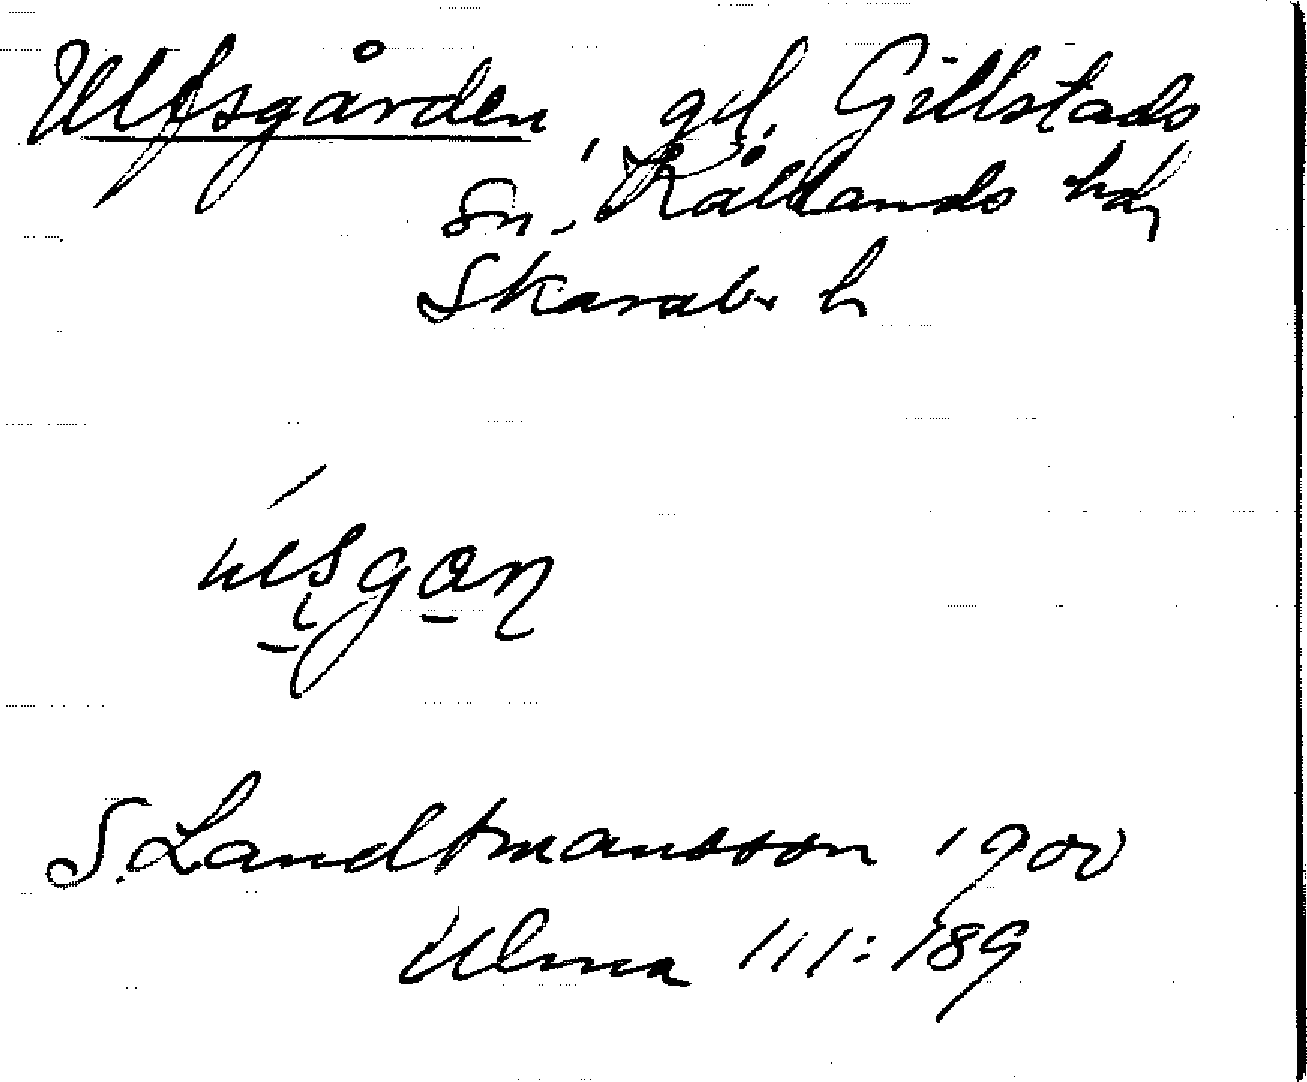 Ulfsgården, gd, Gillstads
Sn., Kållands hd,
Skarab. l.
ulsgan
S. Landtmansson 1900
Ulma 111:189